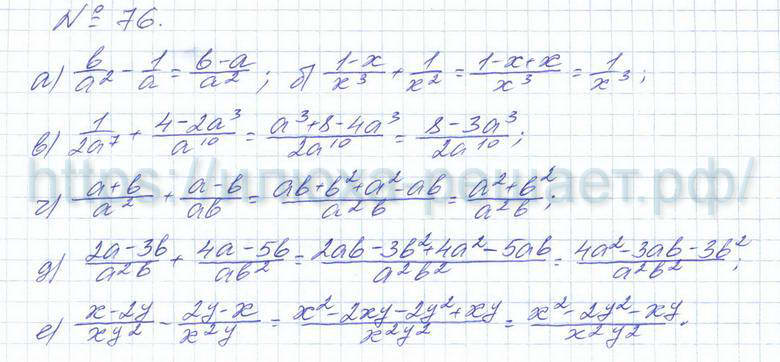 № 76.
а) b/a² - 1/a = (b-a)/a²; б) (1-x)/x³ + 1/x² = (1-x+x)/x³ = 1/x³;
в) 1/(2a⁷) + (4-2a³)/a¹⁰ = (a³+8-4a³)/(2a¹⁰) = (8-3a³)/(2a¹⁰);
г) (a+b)/a² + (a-b)/(ab) = (ab+b²+a²-ab)/(a²b) = (a²+b²)/(a²b);
д) (2a-3b)/(a²b) + (4a-5b)/(ab²) = (2ab-3b²+4a²-5ab)/(a²b²) = (4a²-3ab-3b²)/(a²b²);
е) (x-2y)/(xy²) - (2y-x)/(x²y) = (x²-2xy-2y²+xy)/(x²y²) = (x²-2y²-xy)/(x²y²).